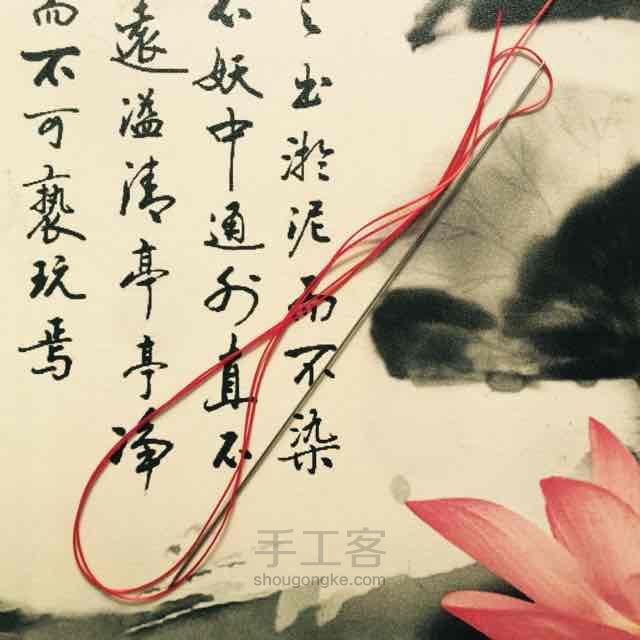 之出淤泥而不染
不妖中通外直不
遠溢清亭亭淨
而不可亵玩焉
手工客
shougongke.com